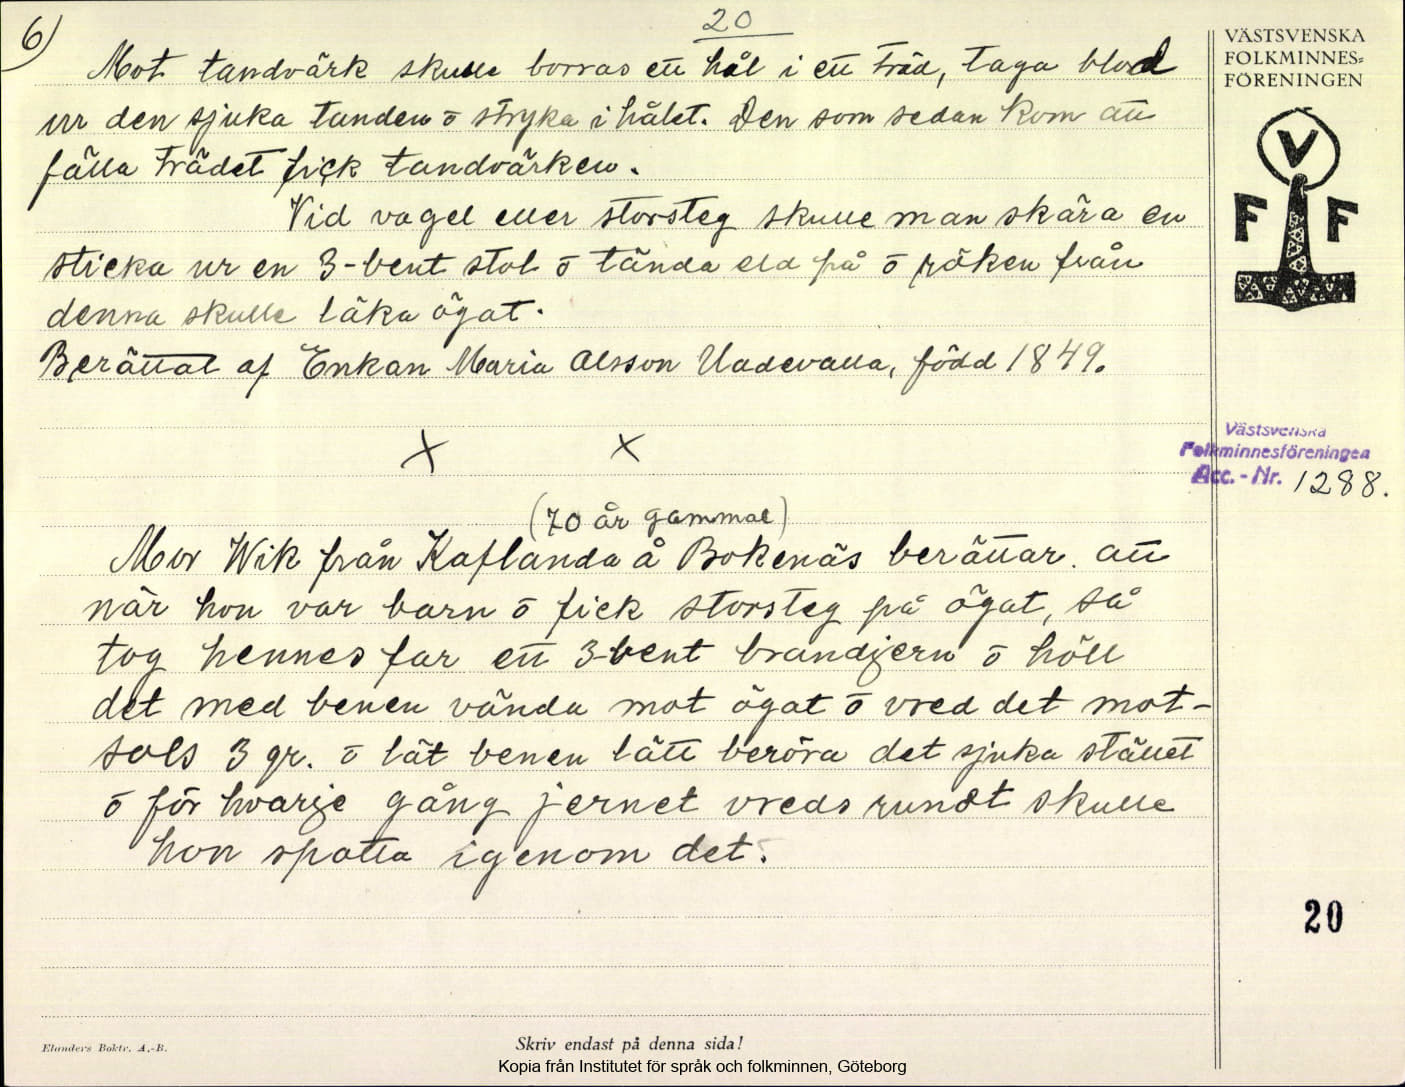 6)
20
Mot tandvärk skulle borras ett hål i ett träd, taga blod
ur den sjuka tanden ō stryka i hålet. Den som sedan kom att
fälla trädet fick tandvärken.
Vid vagel eller storsteg skulle man skära en
sticka ur en 3-bent stol ō tända eld på ō röken från
denna skulle läka ögat.
Berättat af Enkan Maria Olsson Uddevalla, född 1849.
x x
(70 år gammal)
Mor Wik från Kaflanda å Bokenäs berättar. att
när hon var barn ō fick storsteg på ögat, så
tog hennes far ett 3-bent brandjern ō höll
det med benen vända mot ögat ō vred det mot-
sols 3 gr. ō lät benen lätt beröra det sjuka stället
ō för hvarje gång jernet vreds rundt skulle
hon spotta igenom det.
VÄSTSVENSKA
FOLKMINNES=
FÖRENINGEN
V
F F
Västsvenska
Folkminnesföreningen
Acc.-Nr. 1288.
20
Elanders Boktr. A.-B.
Skriv endast på denna sida!
Kopia från Institutet för språk och folkminnen, Göteborg